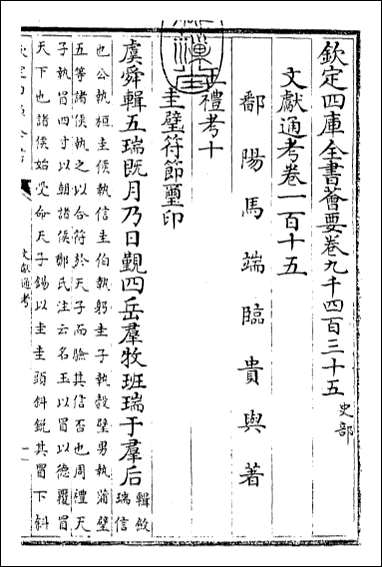 欽定四庫全書薈要卷九千四百三十五 史部
文獻通考卷一百十五
鄱陽馬端臨貴與著
王禮考十
圭璧符節璽印
虞舜輯五瑞既月乃日覲四岳羣牧班瑞于羣后 輯斂
瑞信
也公執桓圭侯執信圭伯執躬圭子執榖璧男執蒲璧
五等諸侯執之以合符於天子而驗其信否也周禮天
子執冒四寸以朝諸侯鄭氏注云名玉以冒以德覆冒
天下也諸侯始受命天子錫以圭圭頭斜銳其冒下斜
文獻通考